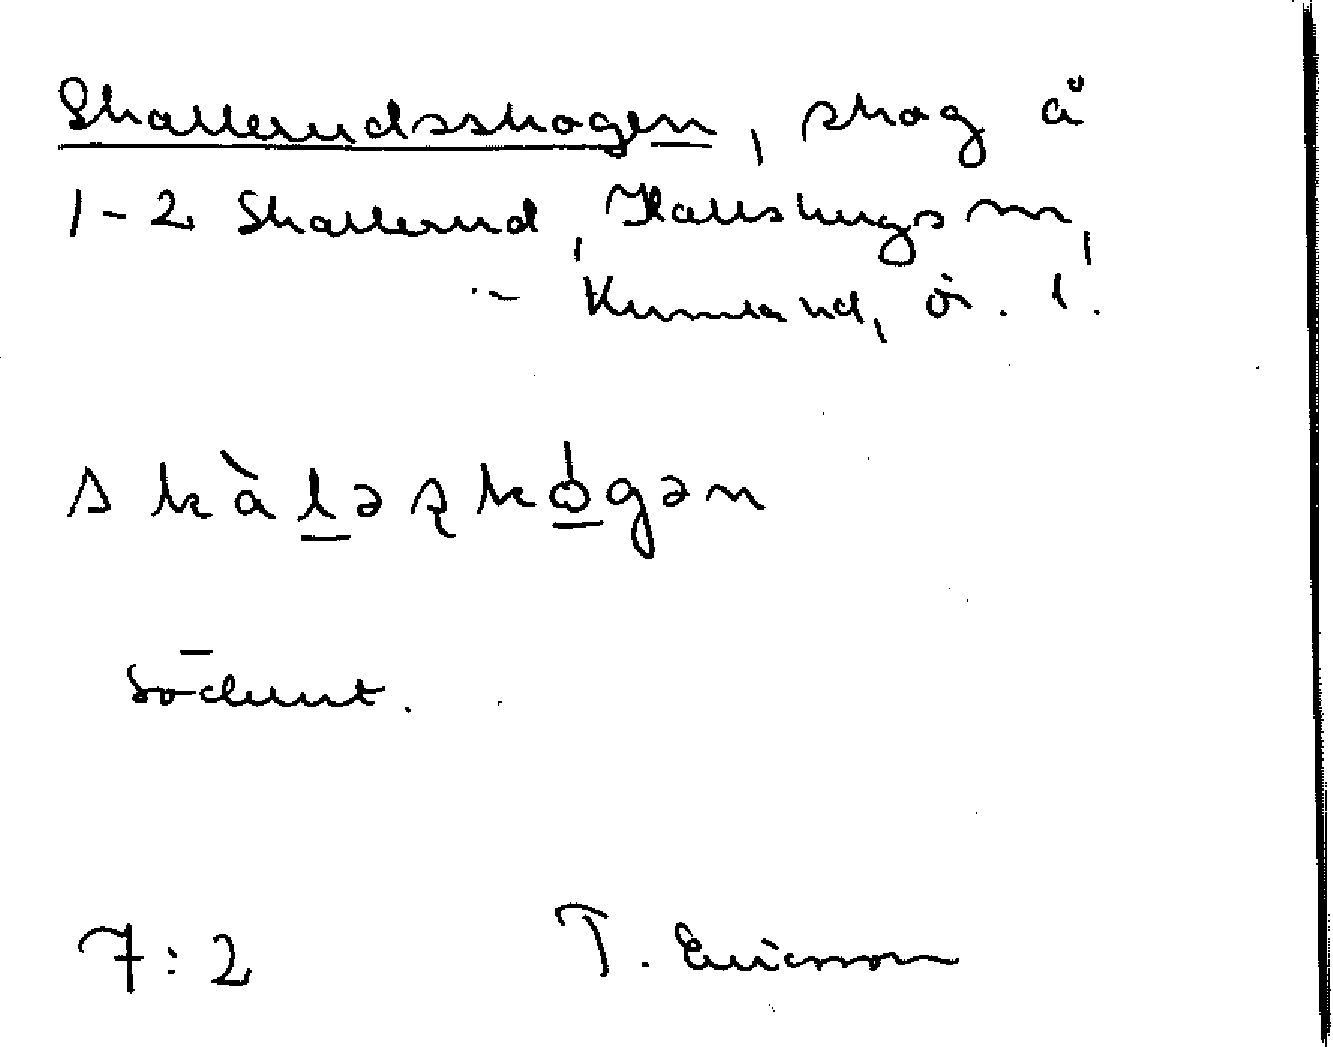 Skallerudsskogen, skog å
1-2 Skallerud, Hallsbergs m,
Kumla hd, ör. l.
skàləʂkógən
7:2 T. Ericsson